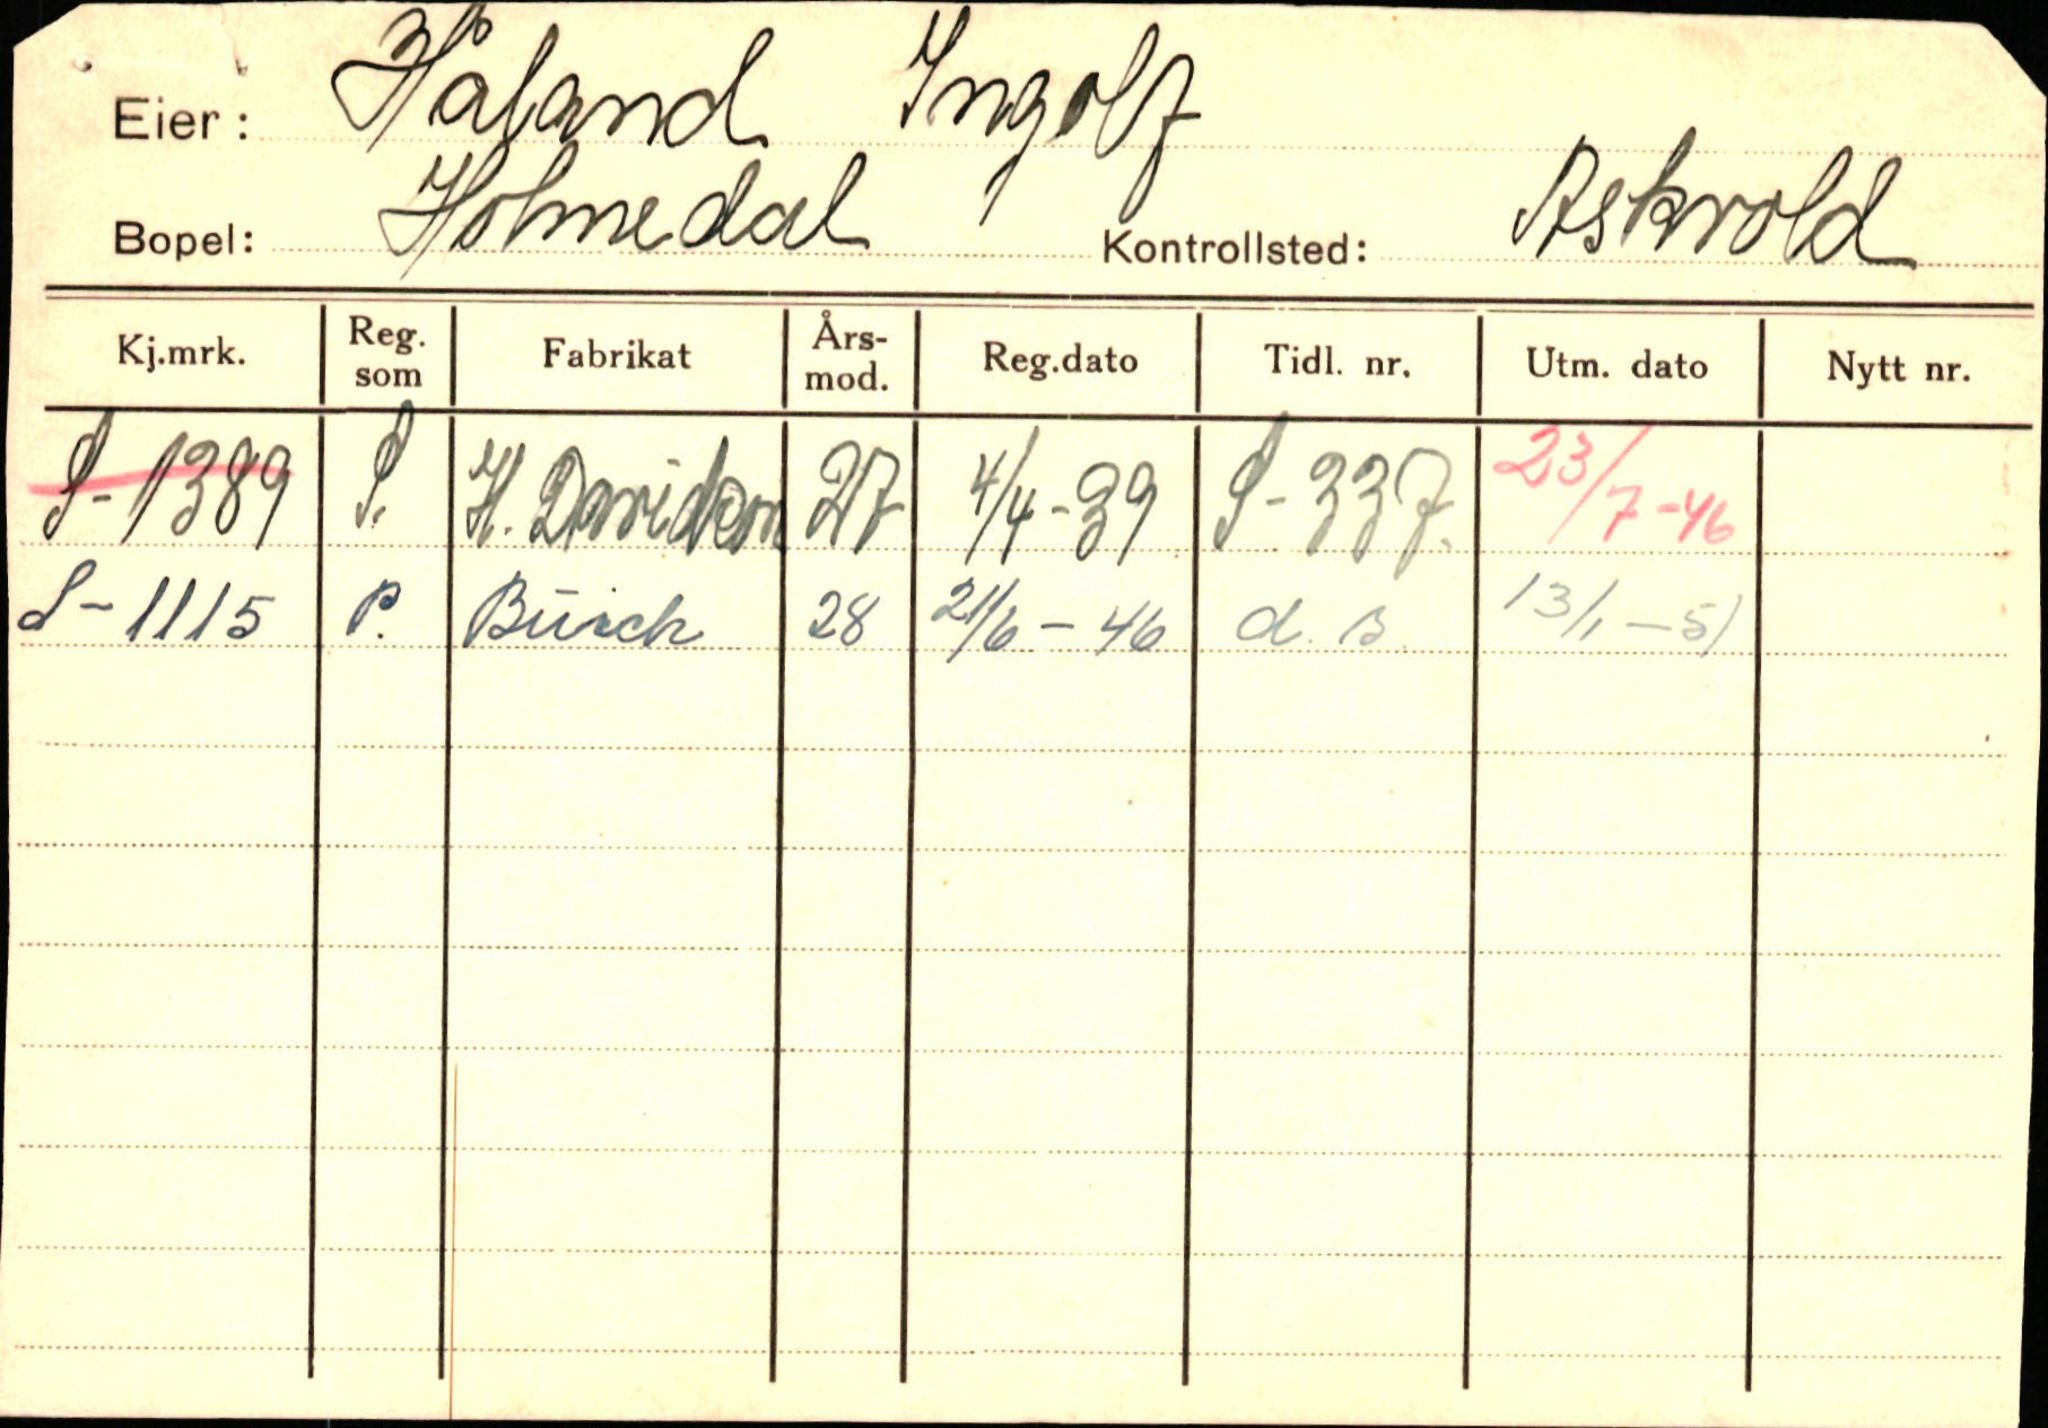 Eier: Håland Ingolf
Bopel: Holmedal Kontrollsted: Askvold
Kj.mrk. Reg. som Fabrikat Års-mod. Reg.dato Tidl. nr. Utm. dato Nytt nr.
S-1389 P. H. Davidson 27 4/4-39 S-337. 23/7-46
S-1115 P. Buick 28 21/6-46 d.s. 13/1-51